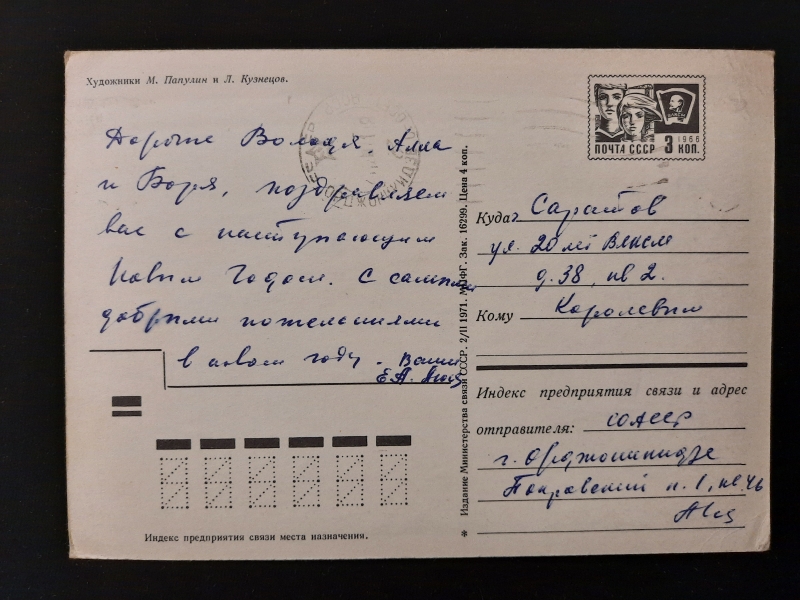 Художники М. Папулин и Л. Кузнецов.
Дорогие Володя, Алла
и Боря, поздравляем
вас с наступающим
Новым Годом. С самыми
добрыми пожеланиями
в новом году. Ваши
Е.А.
Индекс предприятия связи места назначения.
Издание Министерства связи СССР. 2/II 1971. МПФГ. Зак. 16299. Цена 4 коп.
1966
ПОЧТА СССР 3 КОП.
Куда Саратов
ул. 20 лет
д. 38, кв 2.
Кому Королевым
Индекс предприятия связи и адрес
отправителя: СОАССР
г. Орджоникидзе
п. 1, кв. 46
*